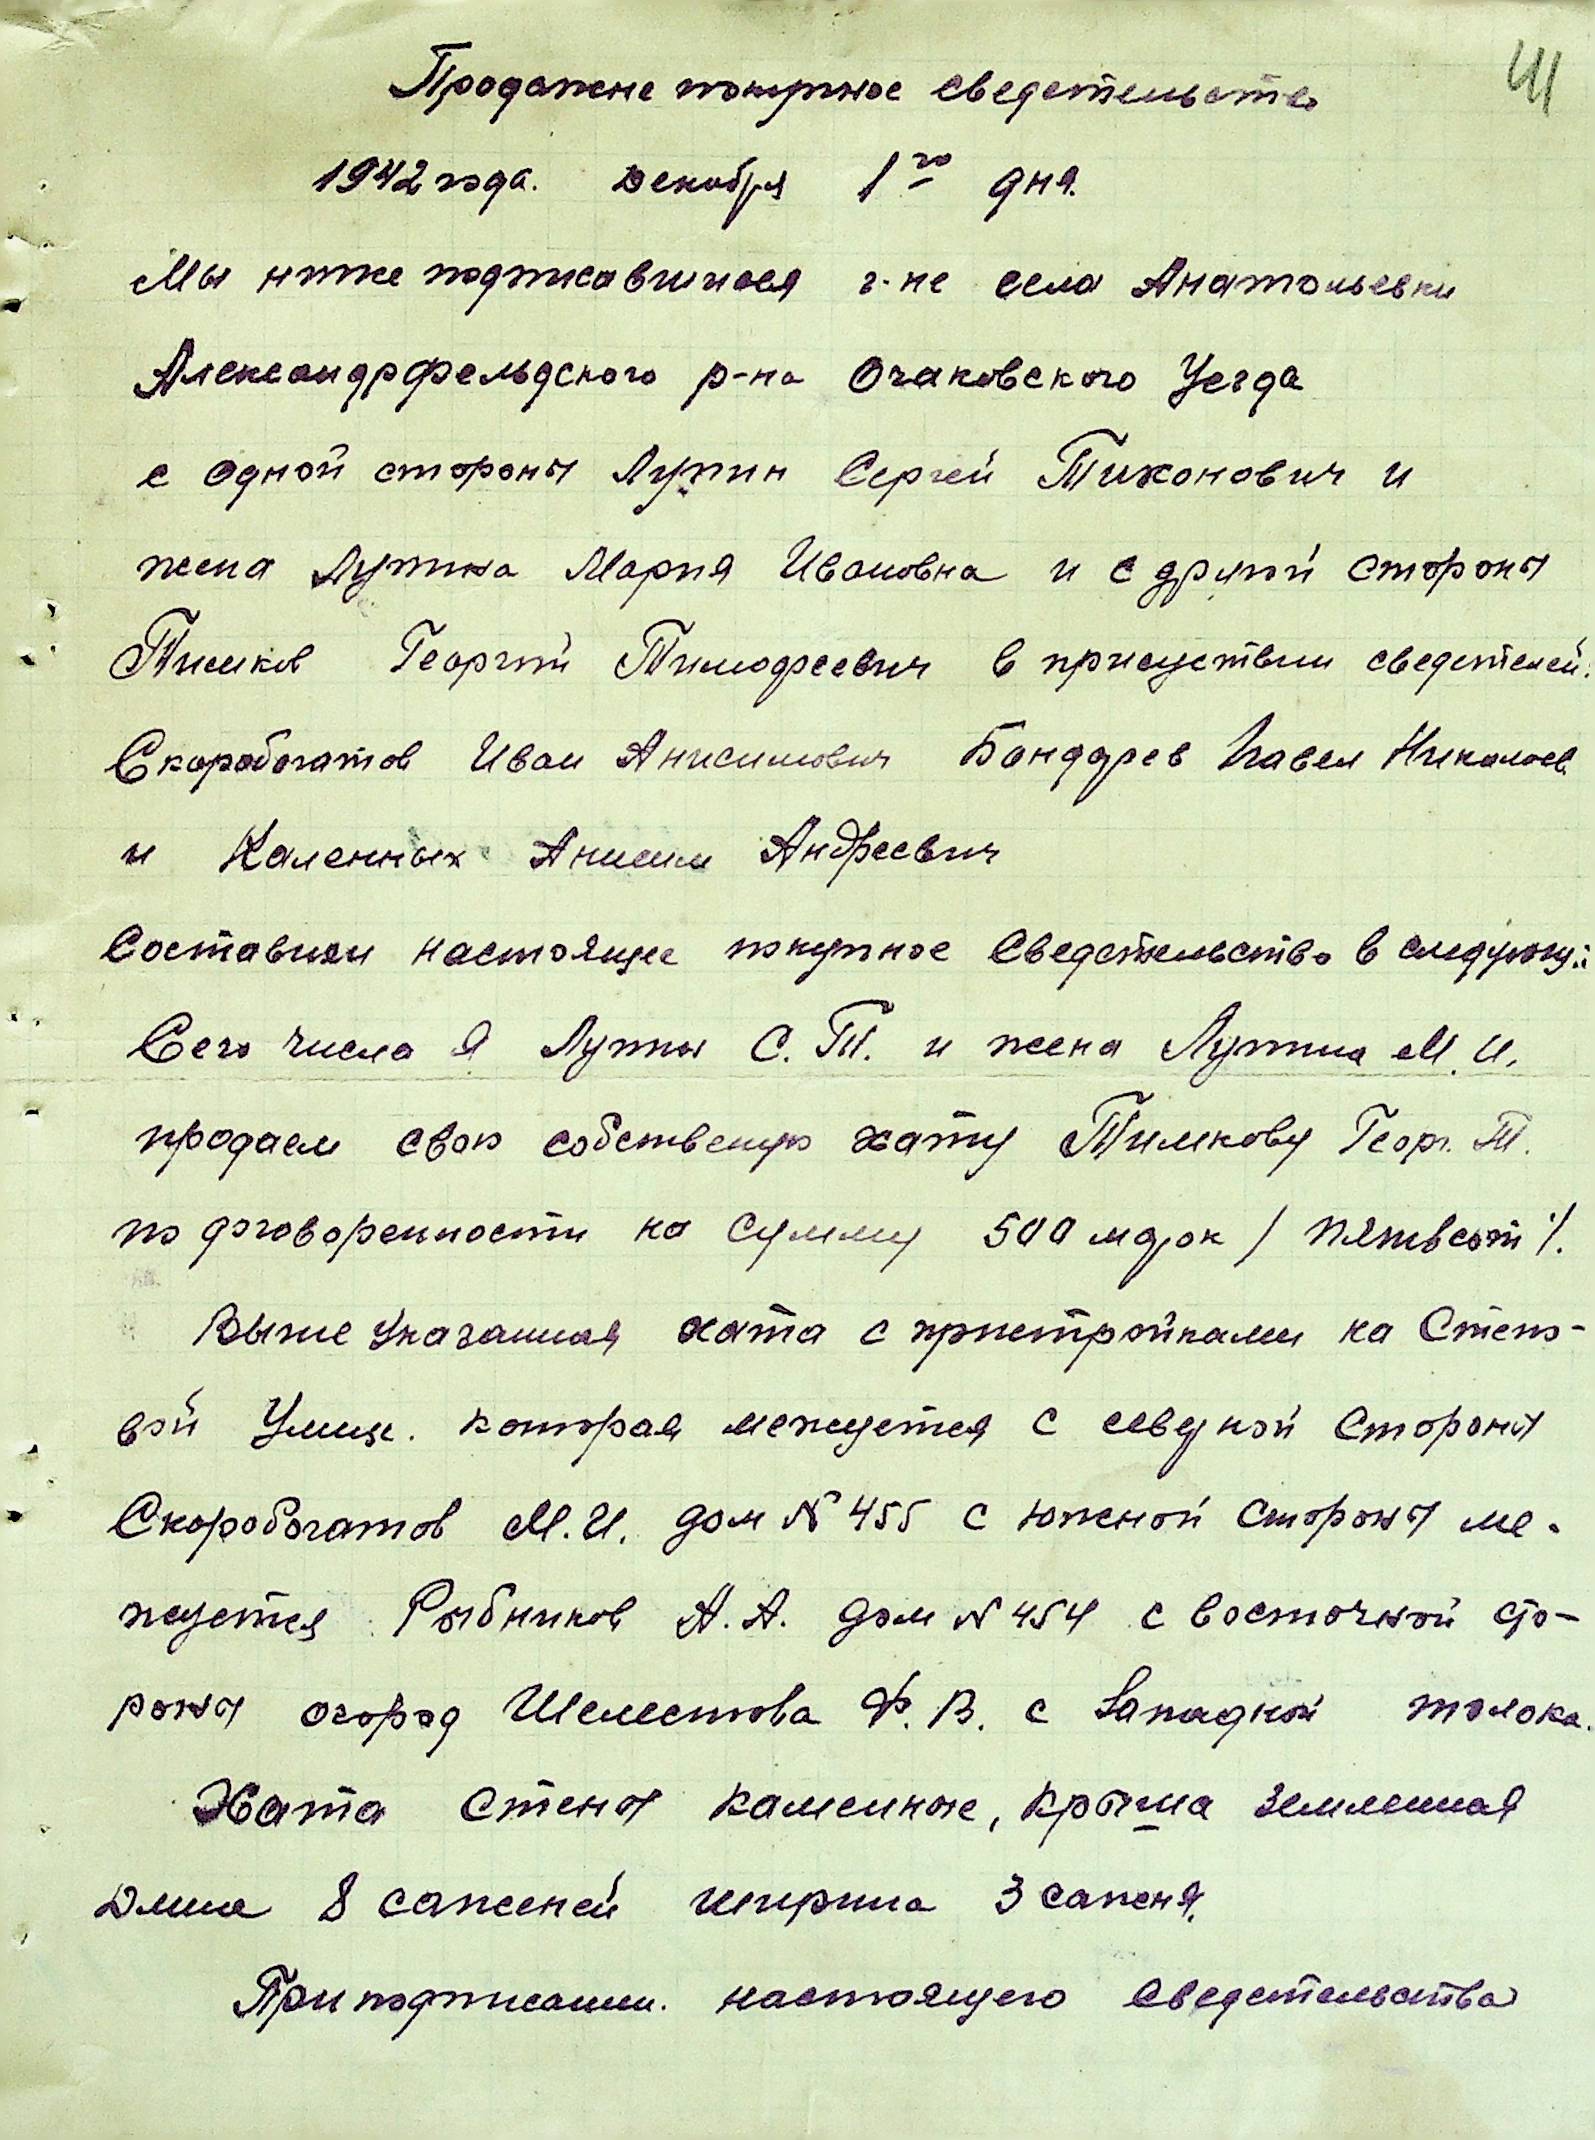 Ш
Продажне покупное сведетельство
1942 года. Декабря 1го дня.
Мы ниже подписавшиеся г-не села Анатольевки
Александрфельдского р-на Очаковского Уезда
с одной стороны Лупин Сергей Тихонович и
жена Лупина Мария Ивановна и с другой стороны
Тимков Георгий Тимофеевич в присуствии сведетелей:
Скоробогатов Иван Анисимович Бондарев Павел Николаев.
и Каленных Анисим Андреевич
Составили настоящее покупное Сведетельство в следующ:
Сего числа я Лупин С. Т. и жена Лупина М. И.
продаем свою собственую хату Тимкову Георг. Т.
по договоренности на сумму 500 марок / пятьсот /.
Выше указанная хата с пристройками на Степо-
вой Улице. которая межуется с северной стороны
Скоробогатов М. И. дом N 455 с южной стороны ме-
жуется Рыбников А. А. дом N 454 с восточной сто-
роны огород Шелестова Ф. В. с Западной толока.
Хата стены каменные, крыша земленная
Длина 8 саженей ширина 3 саженя.
При подписании. настоящего сведетельства